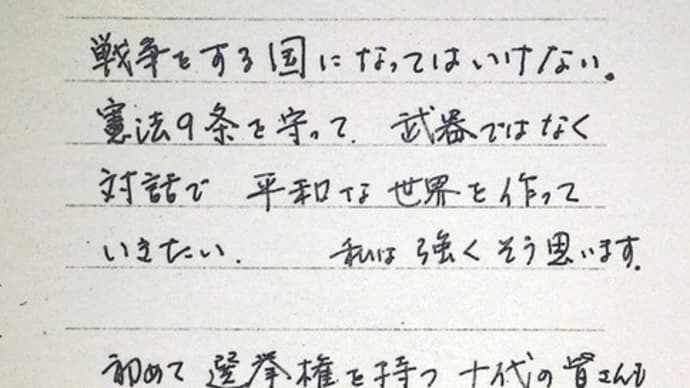 戦争をする国になってはいけない。
憲法9条を守って、武器ではなく
対話で 平和な世界を作って
いきたい. 私は強くそう思います.
初めて選挙権を持つ十代の皆さんも